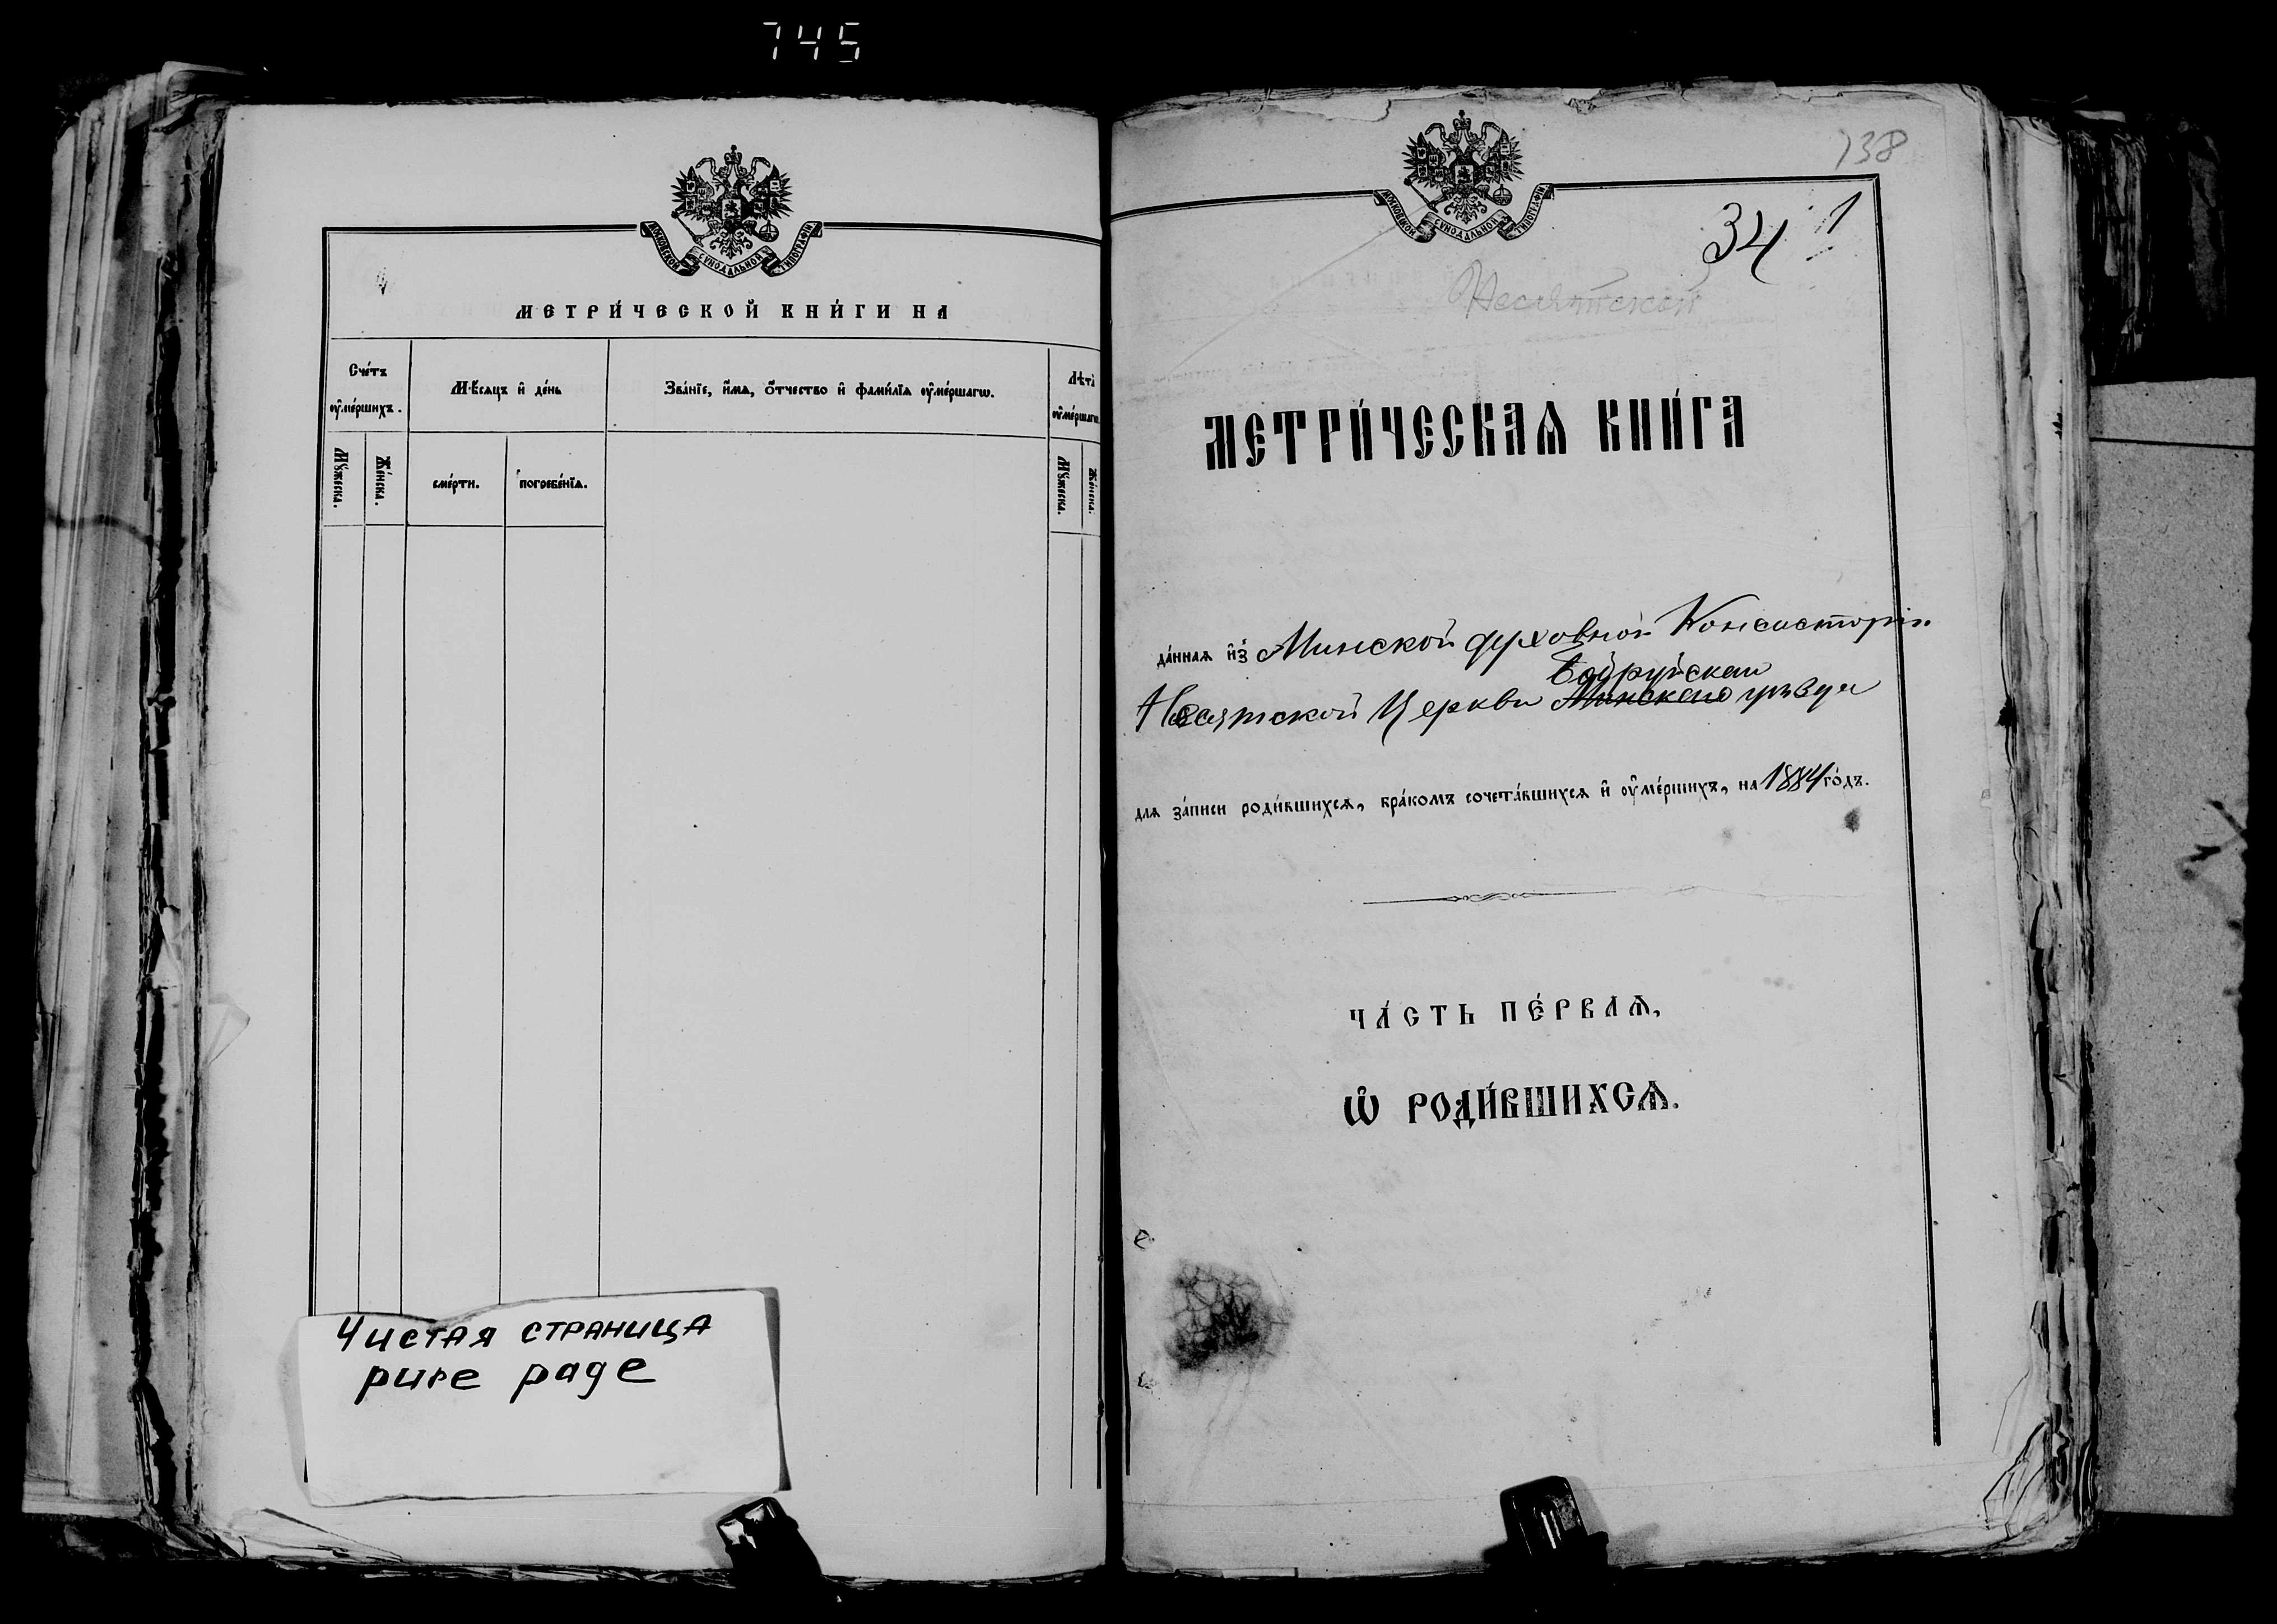 745
МОСКОВСКОЙ СѴНОДАЛЬНОЙ ТИПОГРАФІИ
МЕТРИ́ЧЕСКОЙ КНИ́ГИ НА
Сче́тъ ᲂу҆ме́ршихъ.
Мѣ́сяцъ и҆ де́нь
Зва́нїе, и҆́мѧ, ѻ҆́тчество и҆ фами́лїѧ ᲂу҆ме́ршагѡ.
Лѣ́та ᲂу҆ме́ршагѡ
Мꙋ́жеска.
Же́нска.
сме́рти.
погребе́нїѧ.
Мꙋ́жеска.
Же́нска.
Чистая страница
pure page
МОСКОВСКОЙ СѴНОДАЛЬНОЙ ТИПОГРАФІИ
138
34
1
Несятской
МЕТРИ́ЧЕСКАѦ КНИ́ГА
да́ннаѧ и҆з̾ Минской духовной Консисторіи
Бобруйскаго
Несятской Церкви Минскаго уѣзда
длѧ за́писи роди́вшихсѧ, бра́комъ сочета́вшихсѧ и҆ ᲂу҆ме́ршихъ, на 1884 го́дъ.
ЧА́СТЬ ПЕ́РВАѦ,
Ѡ҆ РОДИ́ВШИХСѦ.